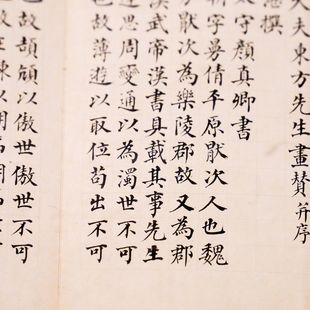 大夫東方先生畫贊并序
湛撰
太守顏真卿書
字曼倩平原猒次人也魏
猒次為樂陵郡故又為郡
漢武帝漢書具載其事先生
邁思周變通以為濁世不可
也故薄遊以取位苟出不可
也故頡頏以傲世傲世不可
以明
不可